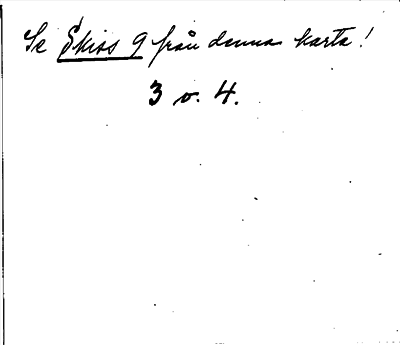 Se Skiss 9 från denna karta!
3 v. 4.